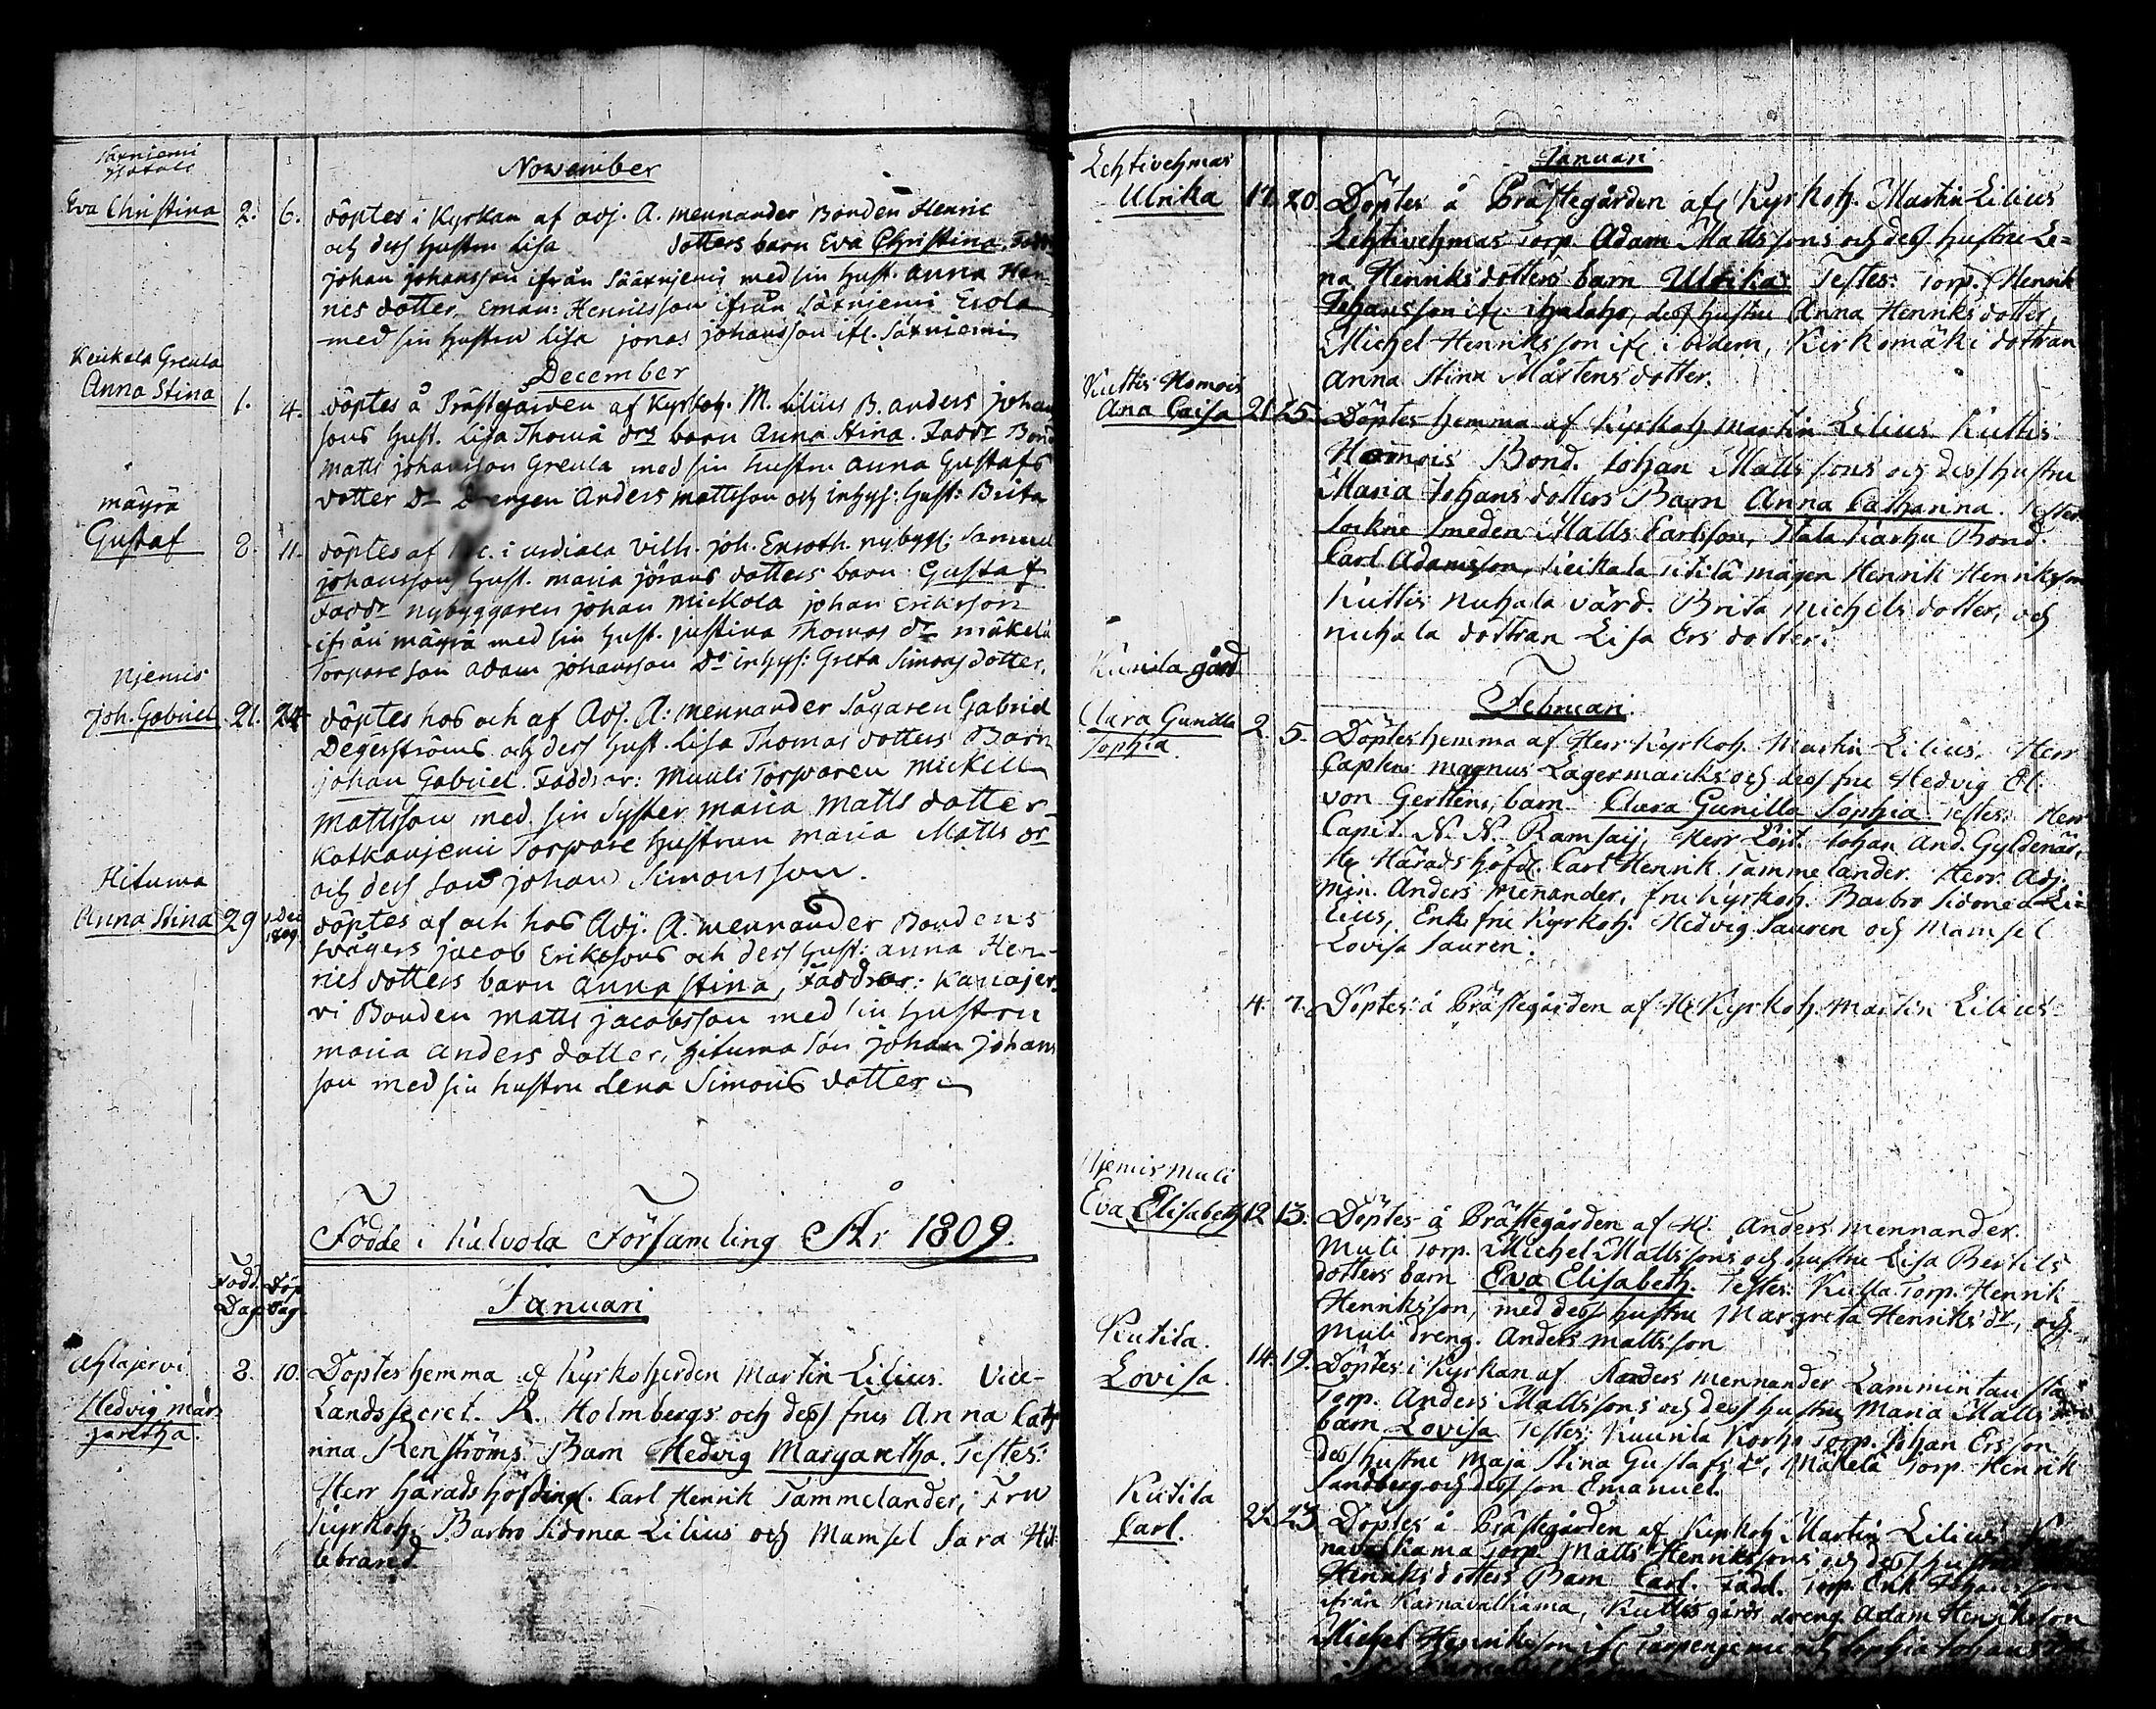 November
Säxniemi
Eva Christina 2. 6. döptes i Kyrkan af adj. A. mennander Bonden Henric
och dess hustru Lisa dotters barn Eva Christina.
johan johansson ifrån Sääxnjemi med sin hust. anna Hen-
rics dotter Eman: Henricsson ifrån Säxnjemi Erola
med sin hustru Lisa jonas johansson ifr. Säxniemi
December
Keikala Greula
Anna Stina 1. 4. döptes å Prästegården af Kyrkoh. M. Lilius B. anders johan
sons hust. Lisa Thomä drs barn Anna Stina. Faddr Bond
Matts johansson Greula med sin hustru anna Gustafs
dotter Do Drengen Anders mattsson och inhys: hust: Brita
mäyrä
Gustaf 8. 11. döptes af i urdiala Vilh. joh. Enroth. nybygg: Samuel
johanssons hust. maria jörans dotters barn Gustaf
Faddr nybyggaren johan Mickola johan Eriksson
ifrån mäyrä med sin hust. justina Thomas dr mäkelä
Torpare son adam johansson Do inhys: Greta Simons dotter.
Njemis
Joh. Gabriel 21. 24 döptes hos och af Adj. A: mennander Sågaren Gabriel
Degerströms och dess hust. Lisa Thomas dotters Barn
johan Gabriel. Faddrar: Muuli Torparen Mickell
Mattsson med sin Syster maria Matts dotter
Katkanjemi Torpare hustrun maria Matts dr
och dess son johan Simonsson.
Hituma
Anna Stina 29 1 Dec 1809 döptes af och hos Adj. A. mennander Bondens
svågers jacob Erikssons och dess hust: anna Hen-
rics dotters barn anna stina, Faddrar: Kanajer
vi Bonden matts jacobsson med sin hustru
maria anders dotter, hituma son johan johans
son med sin hustru Lena Simons dotter
Födde i Kalvola Församling År 1809.
Född. Döp.
Dag. Dag.
Januari
Ahlajervi 8. 10. Döptes hemma af Kyrkoherden Martin Lilius. Vice-
Hedvig mar- Landssecret. R. Holmbergs och dess frus Anna Cath
garetha. rina Renströms Barn Hedvig Margaretha. Testes:
Herr Häradshöfding. Carl Henrik Tammelander, Fru
Kyrkoh. Barbro Sidonea Lilius och Mamsel Sara Hil
lebrand.
Januari
Lehtivehmas
Ulrika 17. 20. Döptes å Prästegården af Kyrkoh. Martin Lilius
Lehtivehmas Torp. Adam Mattssons och dess hustru Le-
na Henriksdotters barn Ulrika: Testes: Torp. Henrik
Johansson ifr. dess hustru Anna Henriks dotter,
Michel Henriksson ifr. ibidem, Kirkomäki dottran
Anna Stina Mårtens dotter.
Kuttis Homois
Ana Caisa 21 25. Döptes hemma af Kyrkoh Martin Lilius Kuttis
Homois Bond. Johan Mattssons och dess hustru
Maria Johansdotters Barn Anna Catharina. Testes
Sockne smeden Matts Carlsson, Bond.
Carl Adamsson, Keikala mågen Henrik Henriksson
Kuttis Nuhala värd. Brita Michels dotter, och
nuhala dottran Lisa Ers dotter.
Februari.
Kunila gård
Clara Gunilla 2. 5. Döptes hemma af Herr Kyrkoh. Martin Lilius. Herr
Sophia. Captens magnus Lagermarcks och dess fru Hedvig El.
von Gertten, barn Clara Gunilla Sophia. Testes: Herr
Capit. N. N. Ramsaij, Herr Löjt. Johan And. Gyldenär,
Hr Häradshöfd. Carl Henrik Tammelander. Herr Adj.
Min. Anders Menander, fru Kyrkoh. Barbro Sidonea Li-
lius, Enk. fru Kyrkoh. Hedvig Sauren och Mamsel
Lovisa Sauren.
4. 7. Döptes å Prästegården af Hr Kyrkoh. Martin Lilius
Njemis Muli
Eva Elisabeth 12 13. Döptes å Prästegården af H. Anders Mennander.
Muli Torp. Michel Mattssons och hustru Lisa Bertils
dotters barn Eva Elisabeth. Testes: Kulla Torp. Henrik
Henriksson, med dess hustru Margreta Henriks dr, och
Muli dreng. Anders Mattsson
Kutila.
Lovisa. 14. 19. Döptes i Kyrkan af Anders Mennander Lammintausta
Torp. Anders Mattssons och dess hustru Maria Matts
barn Lovisa Testes: Kuurila Korpi Torp. Johan Ersson
dess hustru Maja Stina Gustafs dr, Mäkelä Torp. Henrik
Sandberg och dess son Emanuel
Kutila
Carl. 22. 23 Döptes å Prästegården af Kyrkoh Martin Lilius
Torp. Matts Henrikssons och dess hustru
Henriksdotters Barn Carl. Fadd. Torp. Erik Johansson
ifrån Karnavalkama, Kuttis gårds dreng. Adam Henriksson
Michel Henriksson ifr och Sophia Johans